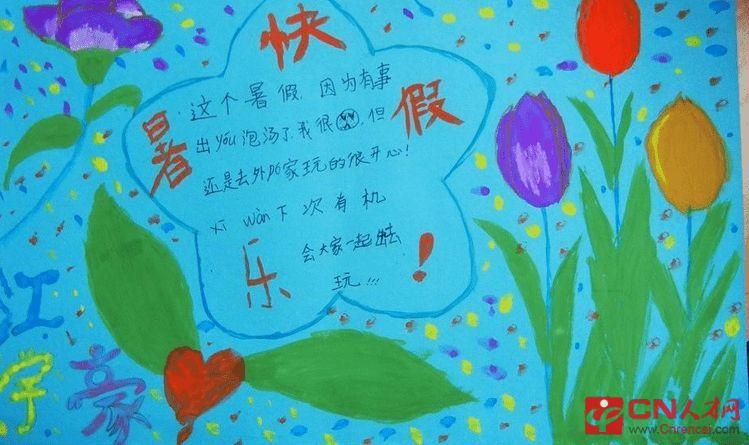 快
暑 假
这个暑假,因为有事
出you泡汤了,我很 ,但
还是去外po家玩的很开心!
xi wàn下次有机
会大家一起出去
玩!!!
乐 !
江
宇豪
CN人才网
Cnrencai.com